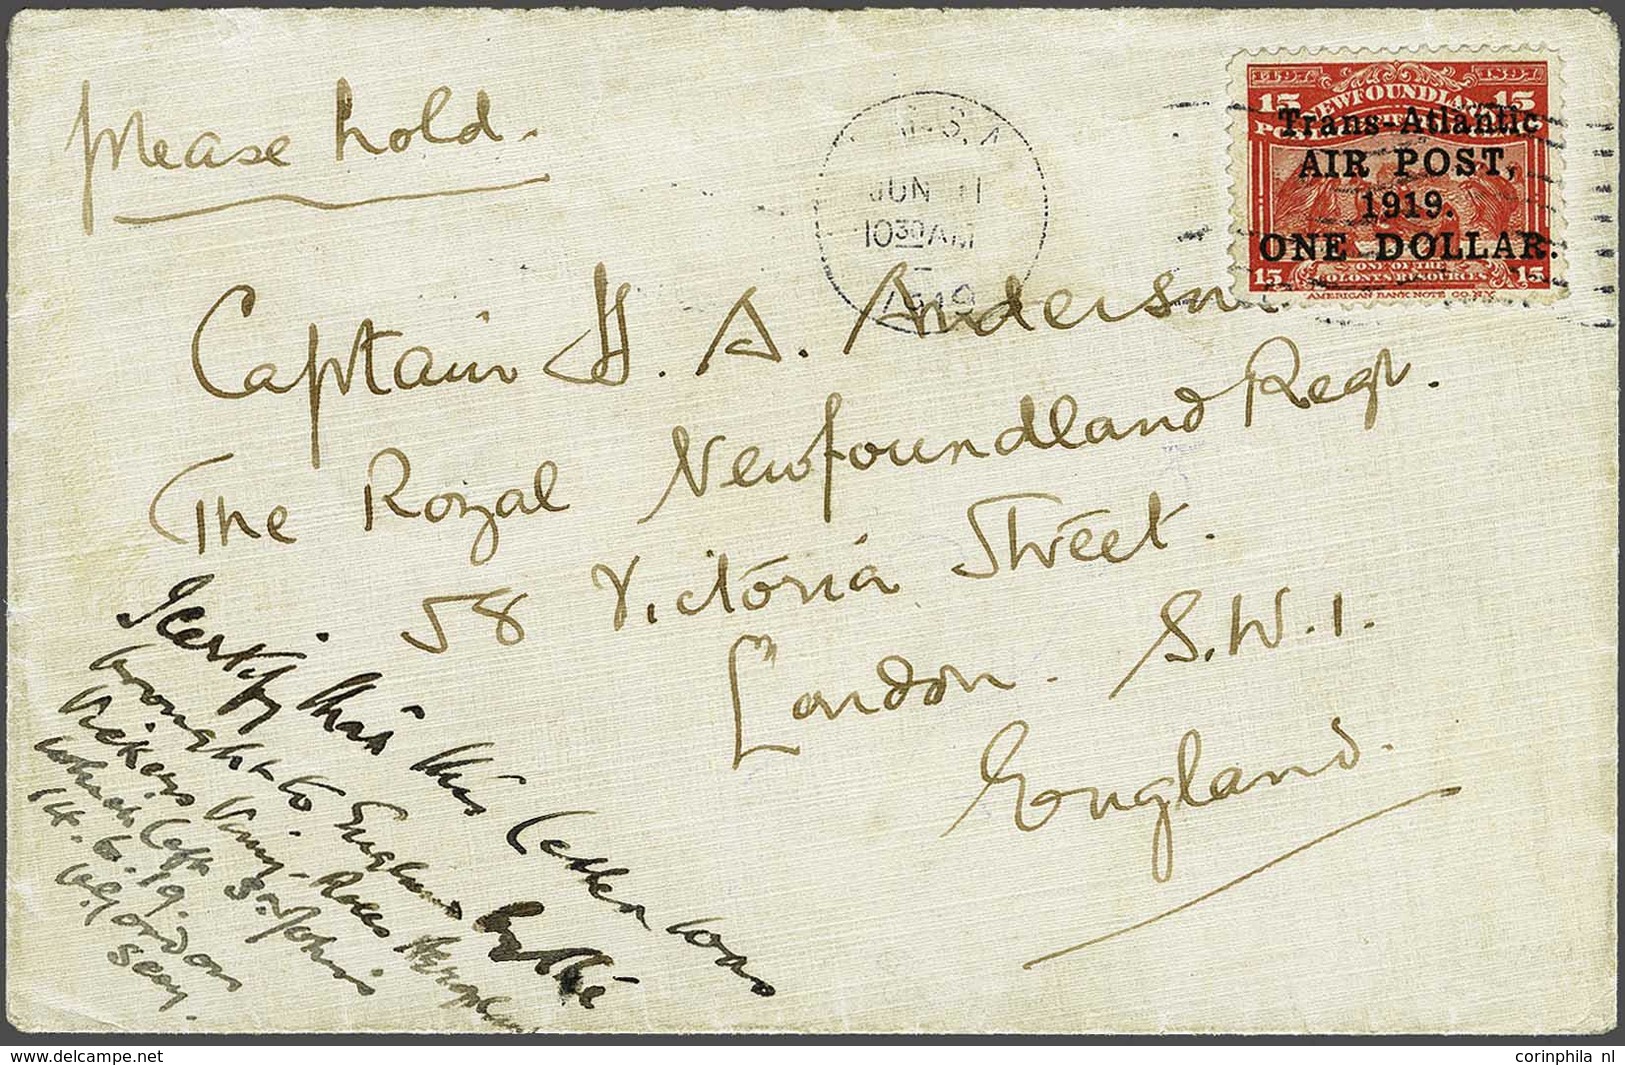 Please hold.
JUN 11
10 30 AM
1919
1497 1897
15 NEWFOUNDLAND 15
Trans-Atlantic
AIR POST,
1919.
ONE DOLLAR.
15 ONE OF THE 15
COLONYS RESOURCES
AMERICAN BANK NOTE CO. N.Y.
Captain H. A. Anderson
The Royal Newfoundland Regt.
58 Victoria Street.
London. S.W.1.
England.
I certify that this letter was
brought to England by the
Vickers Vimy-Rolls Aeroplane
which left St John's
14.6.19.
Gordon
Secy.
corinphila nl
delcampe.net